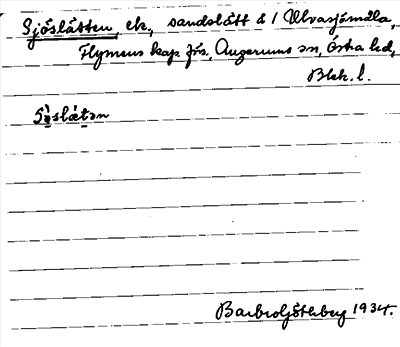 Sjöslätten, ek., sandslätt å 1 Ulvasjömåla,
Flymens kap. förs., Augerums sn, Östra hd,
Blek. l.
Sò̤slæ̀tən
Barbro Götberg 1934.